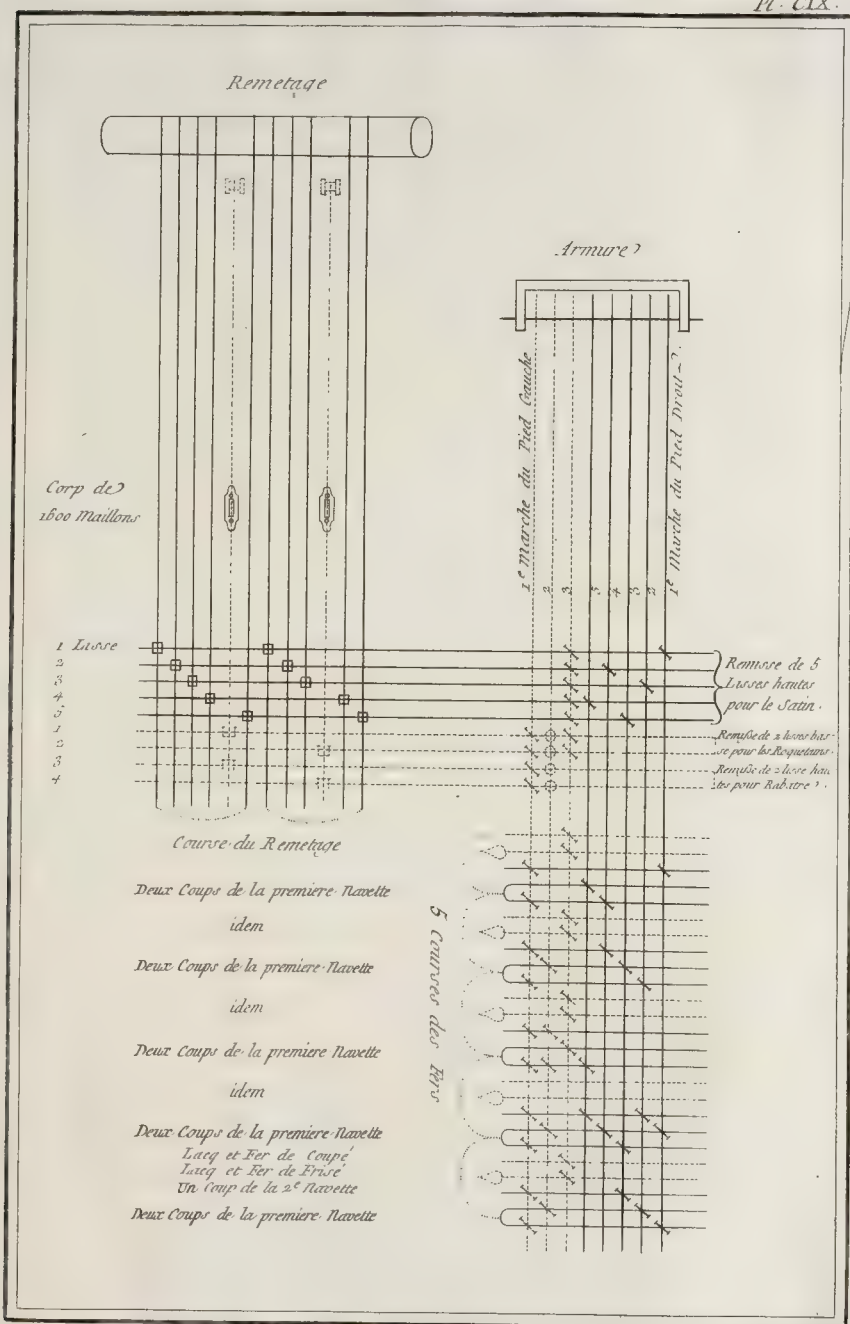 Pl. CIX.
Remetage
Armure
1e marche du Pied Gauche
2
3
5
4
3
2
1e Marche du Pied Droit
Corp de
1600 Maillons
1 Lisse
2
3
4
5
1
2
3
4
Remisse de 5
Lisses hautes
pour le Satin.
Remisse de 2 lisses bas
se pour les Roquetains
Remisse de 2 lisse hau
tes pour Rabatre
Course du Remetage
5 Courses des Fers
Deux Coups de la premiere Navette
idem
Deux Coups de la premiere Navette
idem
Deux Coups de la premiere Navette
idem
Deux Coups de la premiere Navette
Lacq et Fer de Coupé
Lacq et Fer de Frisé
Un Coup de la 2e Navette
Deux Coups de la premiere Navette